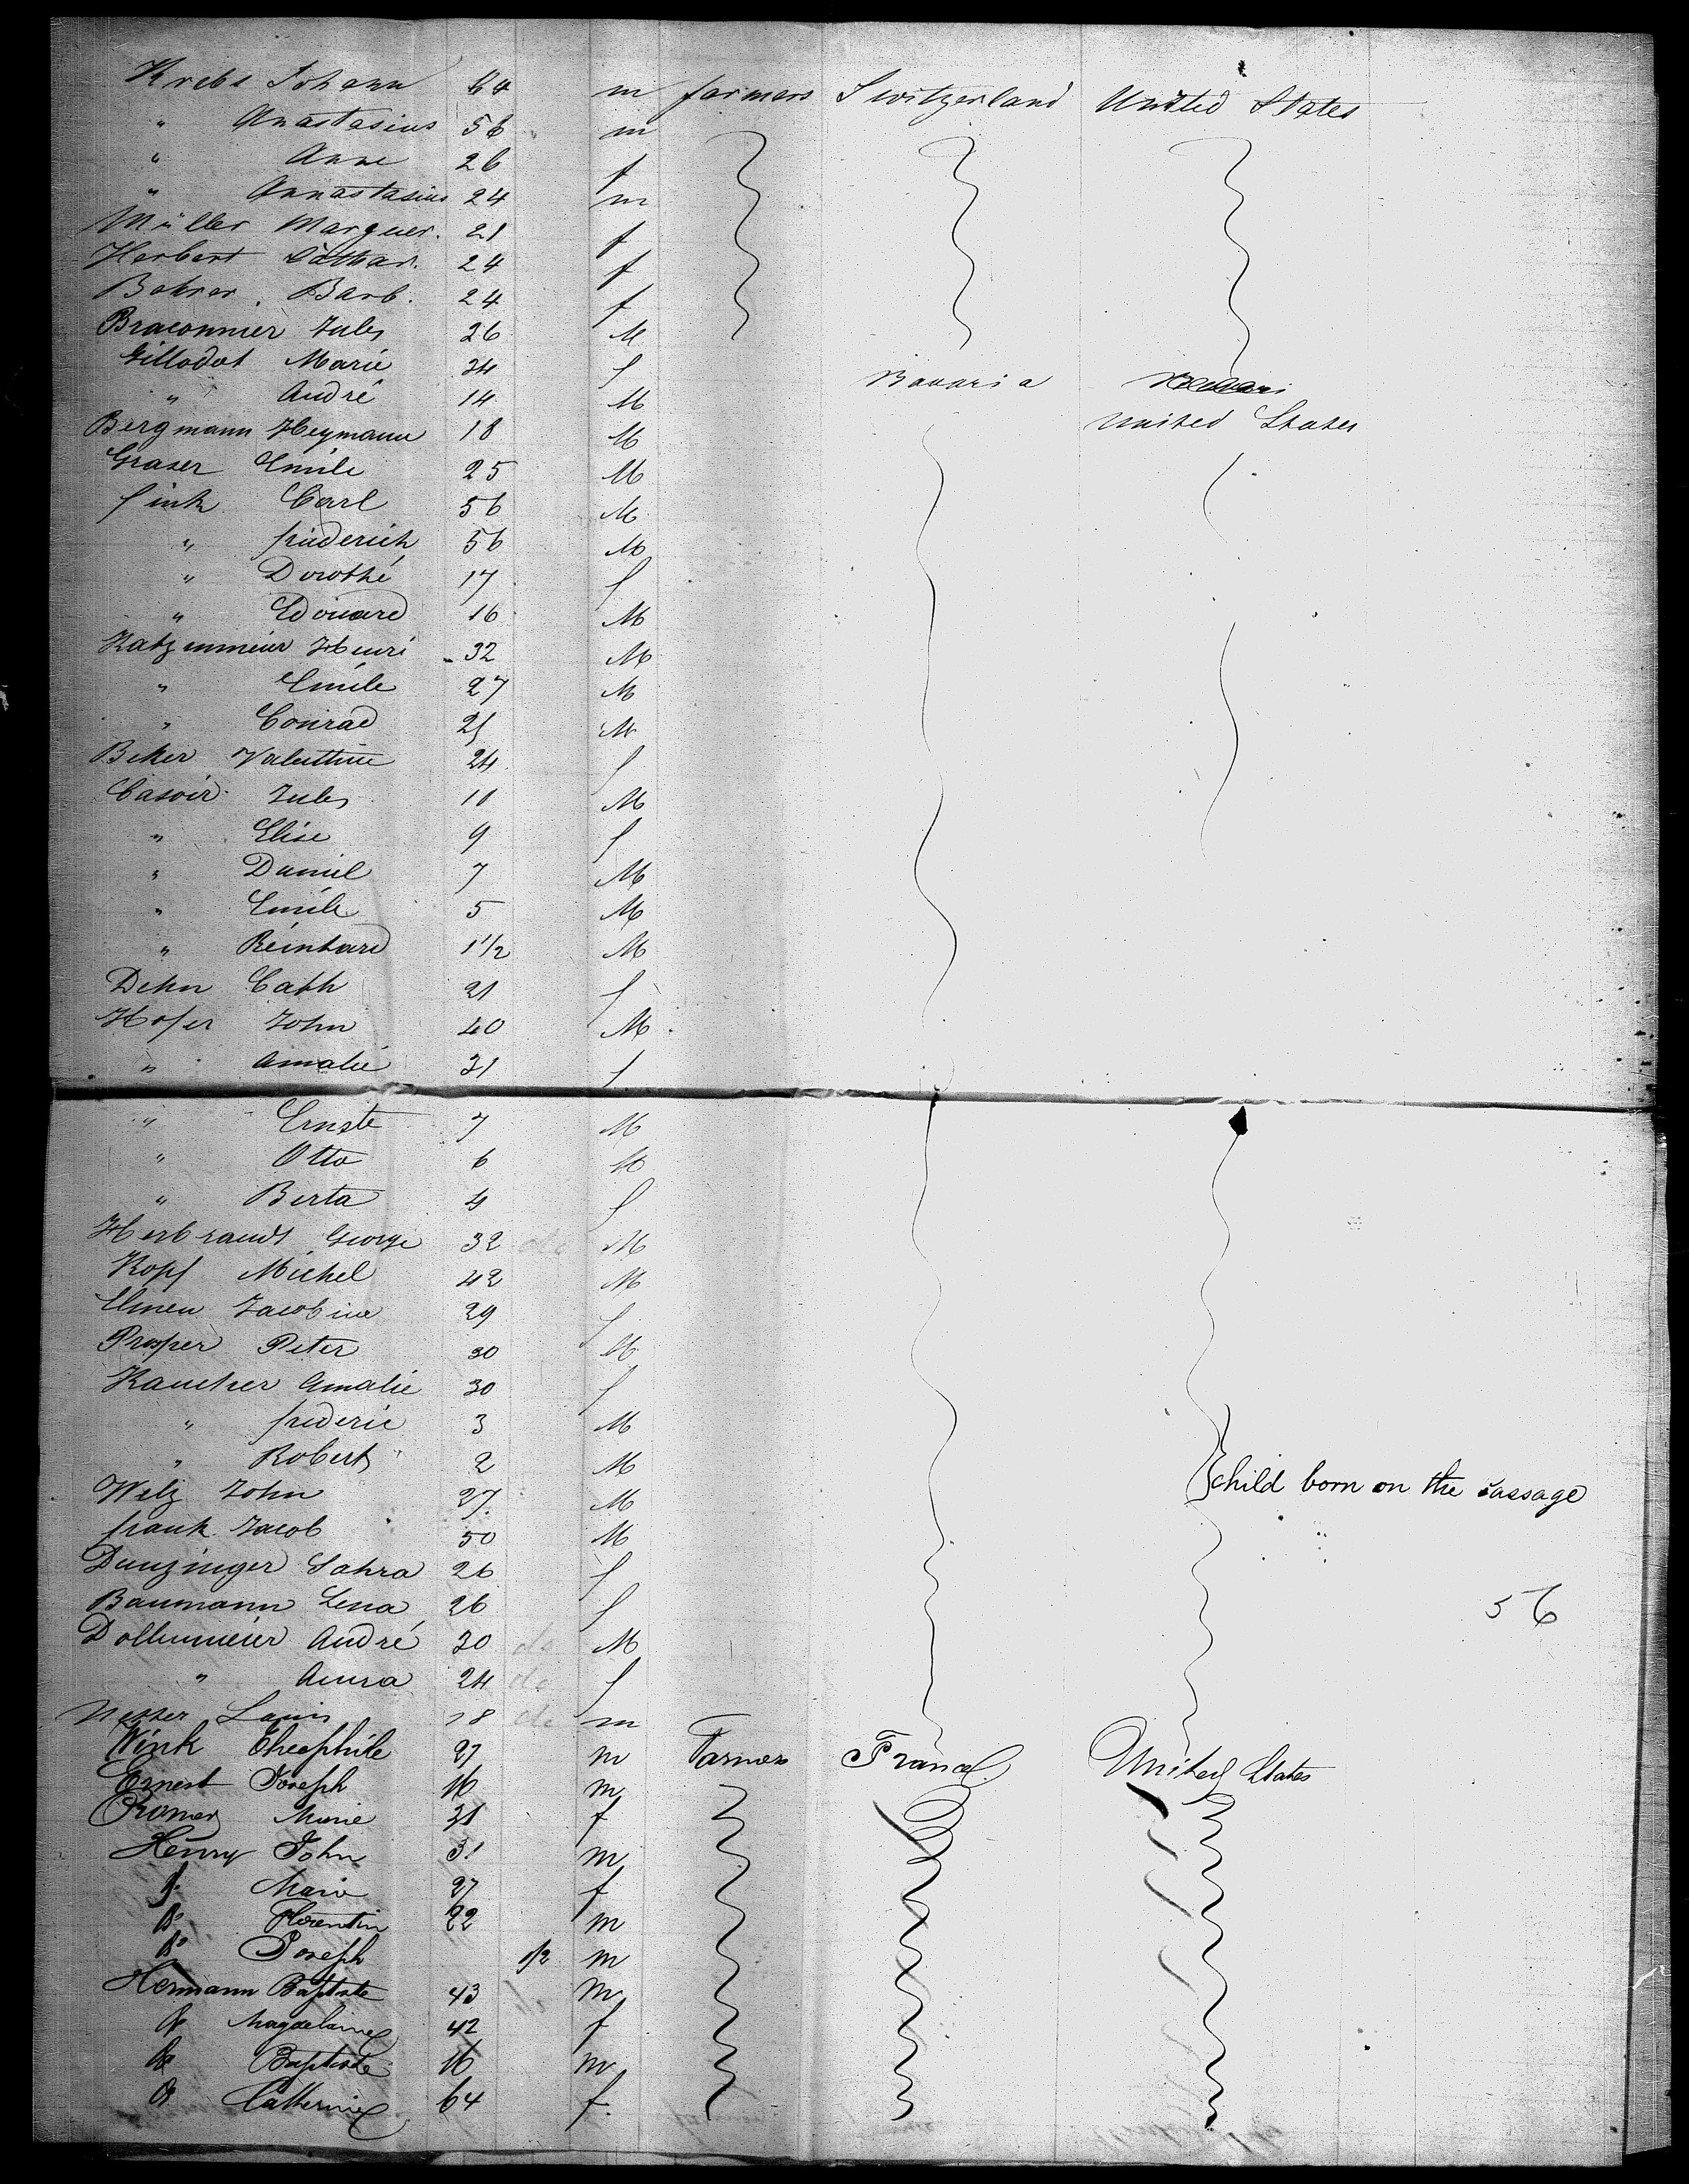 Krebs Johann 64 m farmers Switzerland United States
" Anastasius 56 m
" Anne 26 f
" Annastasius 24 m
Müller Marguer. 21 f
Herbert Cathar. 24 f
Bohrer. Barb. 24 f
Braconnier Jules 26 M
Gillodot Marie 34 f Bavaria
" André 14 M United States
Bergmann Heymann 18 M
Graser Emile 25 M
fink Carl 56 M
" friederich 56 M
" Dorothé 17 f
" Edouard 16 M
Katzenmeier Henri 32 M
" Emile 27 M
" Conrad 25 M
Beker Valentine 24 f
Casoir Jules 11 M
" Elise 9 f
" Daniel 7 M
" Emile 5 M
" Reinhard 1 1/2 M
Dehn Cath 21 f
Hofer John 40 M
" Amalie 31 f
" Ernste 7 M
" Otto 6 M
" Berta 4 f
Herbrandt George 32 do M
Kopf Michel 42 M
Jacobine 29 f
Prosper Peter 30 M
Kaucher Amalie 30 f
" frederic 3 M
" Robert 2 M
child born on the passage
Welz John 27 M
frank Jacob 50 M
Danzinger Sahra 26 f
Baumann Lena 26 f 56
André 30 do M
" Anna 24 do f
Louis 18 do m
Wink Theophile 27 m Farmers France United States
Ernest Joseph 16 m
Marie 31 f
Henry John 31 m
do Marie 27 f
do Florentin 22 m
do Joseph 1/2 m
Hermann Baptiste 43 m
do Magdelaine 42 f
do Baptiste 16 m
do Catherine 64 f.